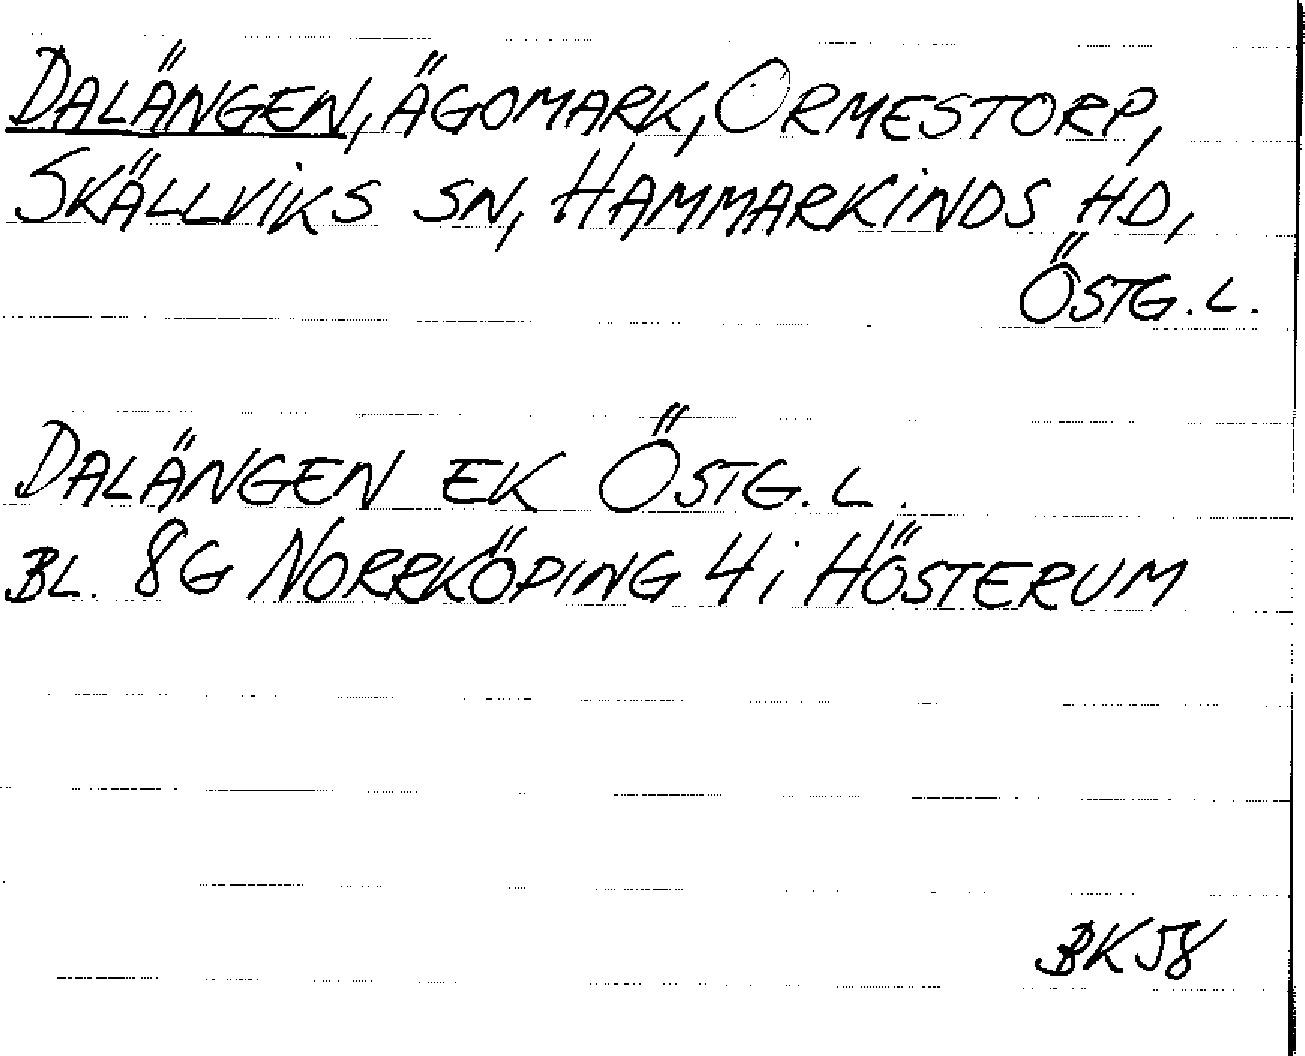 DALÄNGEN, ÄGOMARK, ORMESTORP,
SKÄLLVIKS SN, HAMMARKINDS HD,
ÖSTG. L.
DALÄNGEN EK ÖSTG. L.
BL. 8G NORRKÖPING 4i HÖSTERUM
BK 58